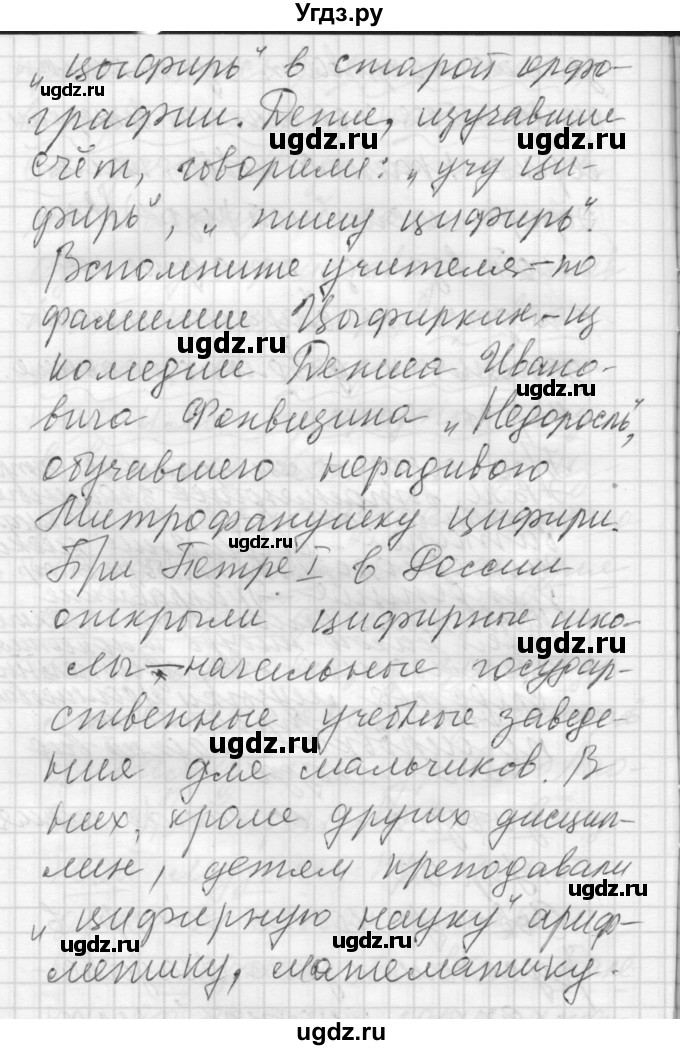 Угдз.ру
„цыфирь“ в старой орфо-
графии. Дети, изучавшие
счёт, говорили: „учу ци-
фирь“, „пишу цифирь“.
Вспомните учителя – по
фамилии Цыфиркин – из
комедии Дениса Ивано-
вича Фонвизина „Недоросль“,
обучавшего нерадивого
Митрофанушку цифири.
При Петре I в России
открыли цифирные шко-
лы – начальные государ-
ственные учебные заведе-
ния для мальчиков. В
них, кроме других дисцип-
лин, детям преподавали
„цифирную науку“ ариф-
метику, математику.
ugdz.ru
ugdz.ru
ugdz.ru
ugdz.ru
ugdz.ru
ugdz.ru
ugdz.ru
ugdz.ru
ugdz.ru
ugdz.ru
ugdz.ru
ugdz.ru